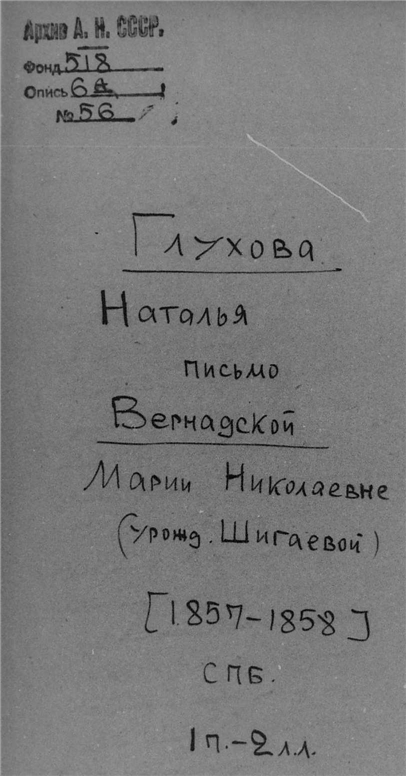 Архив А. Н. СССР.
Фонд 518
Опись 6а
№ 56
Глухова
Наталья
письмо
Вернадской
Марии Николаевне
(урожд. Шигаевой)
[1857-1858]
СПБ.
1п.-2л.л.